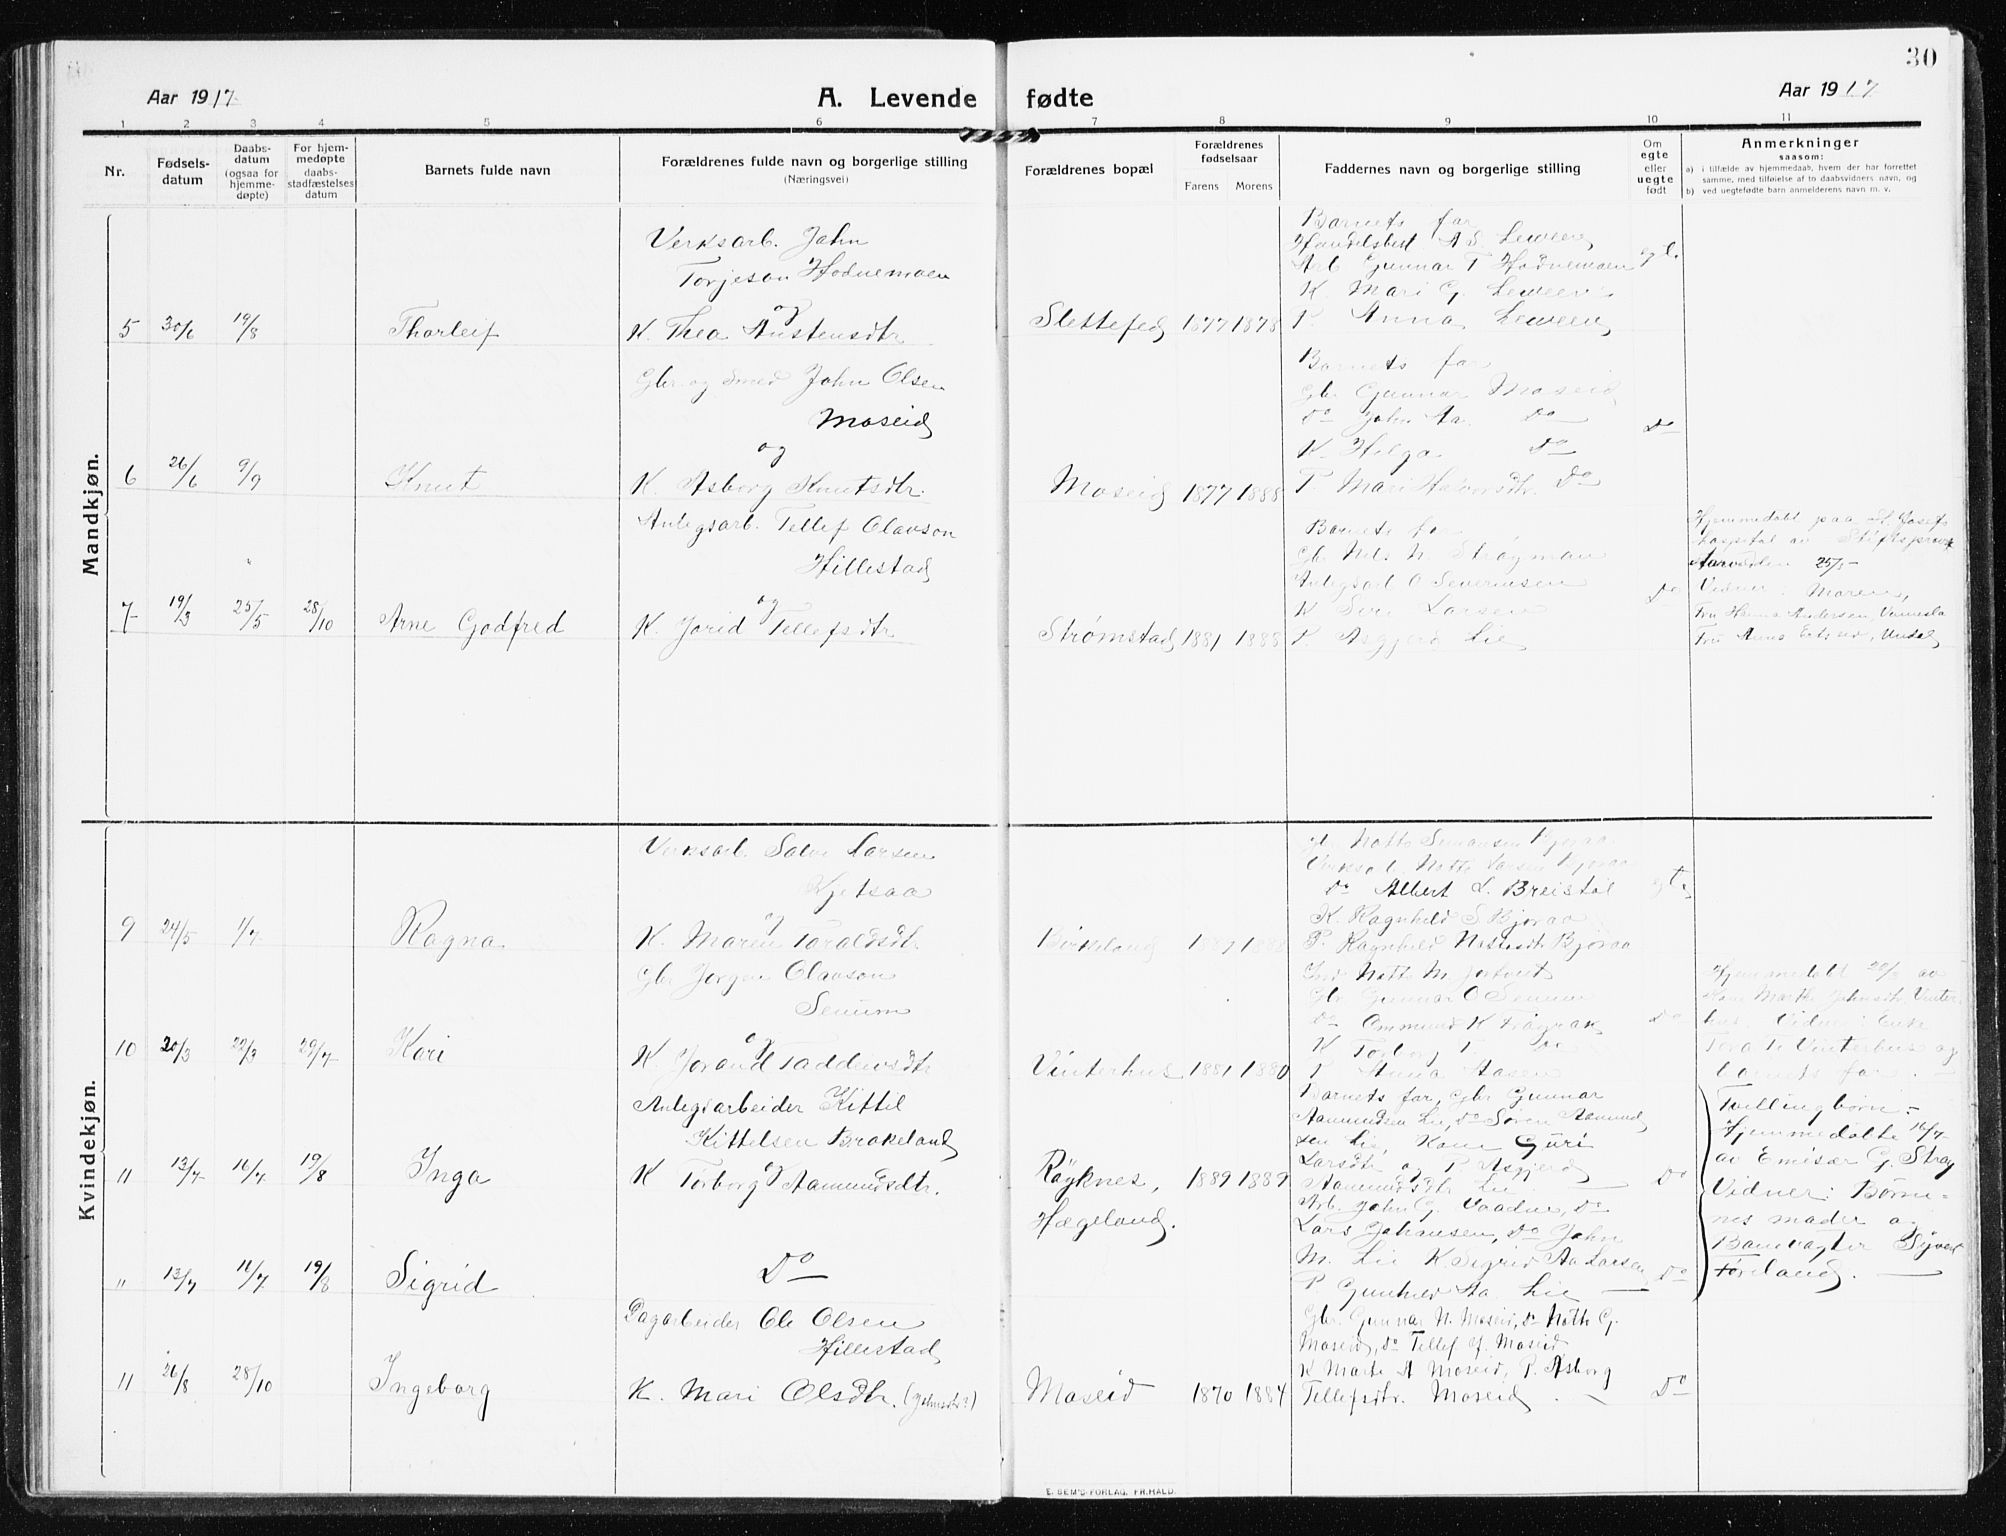 30
Aar 1917.
A. Levende fødte
Aar 1917
1 2 3 4 5 6 7 8 9 10 11
Nr.
Fødsels-
datum
Daabs-
datum
(ogsaa for
hjemme-
døpte)
For hjem-
medøpte
daabs-
stadfæstelses
datum
Barnets fulde navn
Forældrenes fulde navn og borgerlige stilling
(Næringsvei)
Forældrenes bopæl
Forældrenes
fødselsaar
Farens Morens
Faddernes navn og borgerlige stilling
Om
egte
eller
uegte
født
Anmerkninger
saasom:
a) i tilfælde av hjemmedaab, hvem der har forrettet
samme, med tilføielse af to daabsvidners navn, og
b) ved uegtefødte barn anmelderens navn m. v.
Mandkjøn.
5 30/6 19/8 Thorleif
Verksarb. John
Torjeson Hodnemoen
og
K. Thea Austensdtr
Slettefed 1877 1878
Barnets far
Handelsbest. A S. Leween
Arb Gunnar T Hodnemoen
K. Mari G. Leween
P. Anna Leween
egt.
6 26/6 9/9 Knut
Gbr. og Smed John Olsen
Moseid
og
K. Asborg Knutsdtr.
Moseid 1877 1888
Barnets far
Gbr Gunnar Moseid
Do John Aa. Do
K. Helga Do
P. Mari Halvorsdtr. Do
Do
7 19/3 25/5 28/10 Arne Godfred
Anlegsarb. Tellef Olavson
Hillestad
og
K. Jorid Tellefsdtr
Strømstad 1881 1888
Barnets far
Gbr Nels N. Strøyman
Anlegsarb O Severinsen
K Siri Larsen
P. Asgjerd Lie
Do
Hjemmedøbt paa St. Josefs
hospital av Stiftsprovst
25/5
Vidner: Moren,
Fru Hanna Andersen, Vennesla
Fru Anna
Kvindekjøn.
9 24/5 1/7 Ragna
Verksarb. Salve Larsen
Kjetsaa
og
K. Maren Toraldsdtr.
Birkeland
Gbr Notto Simonsen Bjoraa
Verksarb Notto Larsen Bjoraa
Do Albert L. Breistøl
K. Ragnhild S Bjoraa
P. Ragnhild Nottesdtr Bjoraa
egt.
10 20/3 22/3 29/7 Kari
Gbr Jørgen Olavson
Senum
og
K. Jorand Taddevsdtr
Vinterhus 1881 1880
Gbr Gunnar O Senum
Do Ommund K
K Torborg T. Do
P Anna Aasen
Do
Hjemmedøbt 22/3 av
Kone Marthe Johnsdtr. Vinter-
hus. Vidner: Enke
Tora T. Vinterhus og
barnets far.
11 13/7 16/7 19/8 Inga
Anlegsarbeider Kittil
Kittelsen Brokeland
og
K Torborg Aamundsdtr.
Røyknes,
Hægeland.
1889 1889
Barnets far, Gbr Gunnar
Aamundsen Lie, Do Søren Aamund
sen Lie, Kone Guri
Larsdtr og P. Asgjerd
Aamundsdtr Lie
Do
Tvillingbørn
Hjemmedøbte 16/7
av Emisær G. Stray
Vidner: Børne-
nes moder og
Banevagter Syvert
Føreland.
" 13/7 16/7 19/8 Sigrid
Do
Arb. John G. Vaadne, Do
Lars Johansen, Do John
M. Lie K. Sigrid Aa Larsen
P. Gunhild Aa Lie
Do
11 26/8 28/10 Ingeborg
Dagarbeider Ole Olsen
Hillestad
K. Mari Olsdtr. (Johnsdtr?)
Moseid 1870 1884
Gbr. Gunnar N. Moseid, Do Notto G.
Moseid, Do Tellef J. Moseid
K Marte A Moseid, P. Asborg
Tellefsdtr. Moseid.
Do
E. SEM'S FORLAG, FR.HALD.